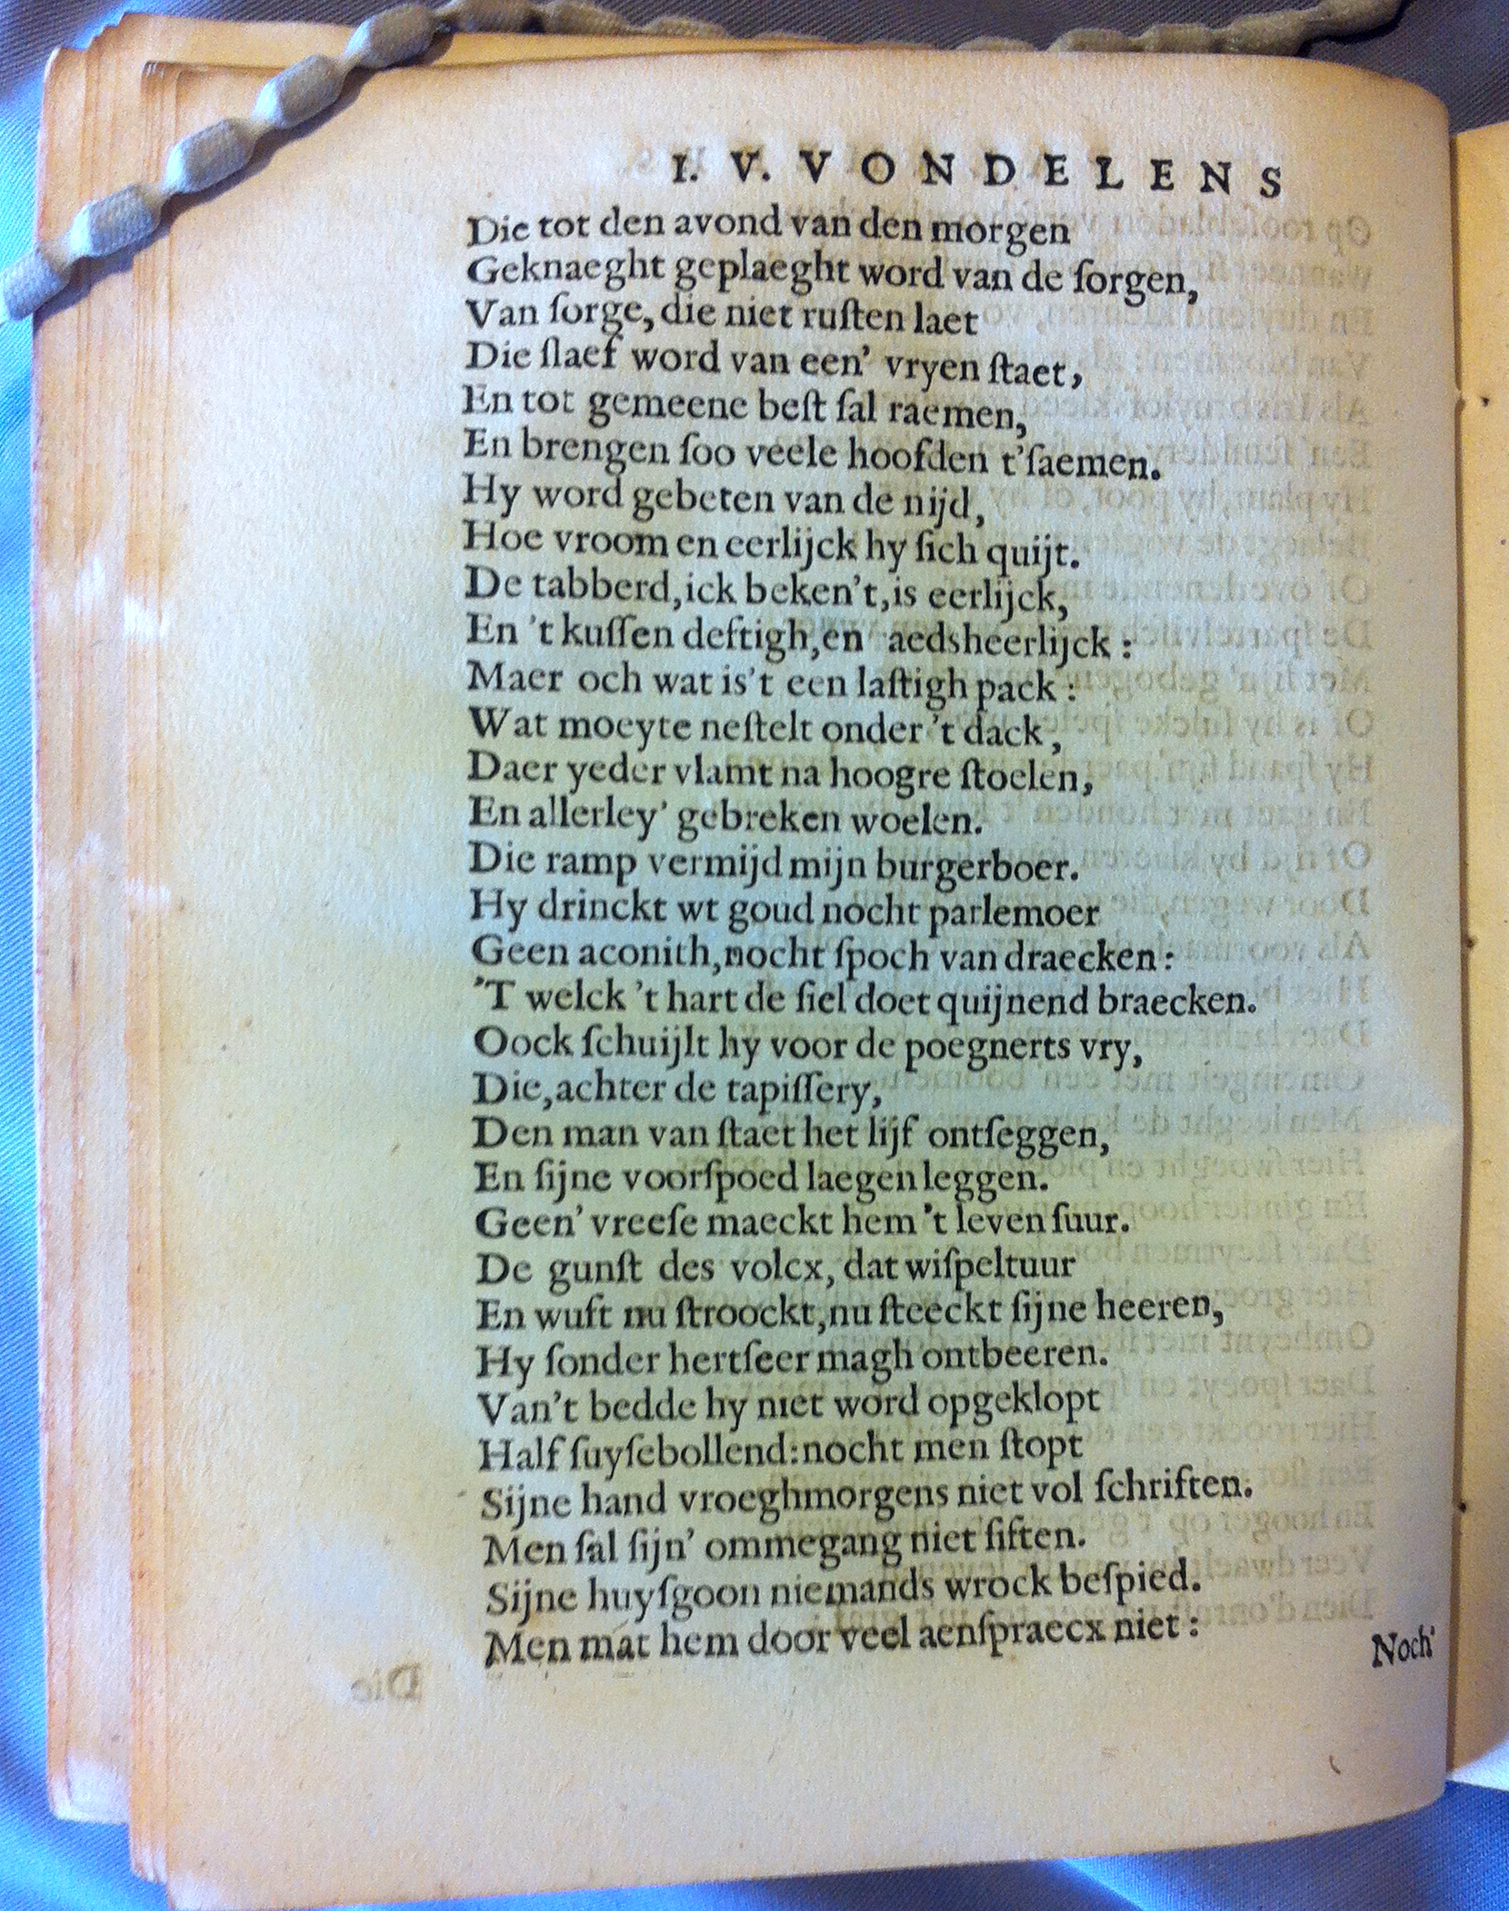 I. V. VONDELENS
Die tot den avond van den morgen
Geknaeght geplaeght word van de ſorgen,
Van ſorge, die niet ruſten laet
Die ſlaef word van een' vryen ſtaet,
En tot gemeene beſt ſal raemen,
En brengen ſoo veele hoofden t'ſaemen.
Hy word gebeten van de nijd,
Hoe vroom en eerlijck hy ſich quijt.
De tabberd, ick beken't, is eerlijck,
En 't kuſſen deftigh, en aedsheerlijck:
Maer och wat is't een laſtigh pack:
Wat moeyte neſtelt onder 't dack,
Daer yeder vlamt na hoogre ſtoelen,
En allerley' gebreken woelen.
Die ramp vermijd mijn burgerboer.
Hy drinckt wt goud nocht parlemoer
Geen aconith, nocht ſpoch van draecken:
'T welck 't hart de ſiel doet quijnend braecken.
Oock ſchuijlt hy voor de poegnerts vry,
Die, achter de tapiſſery,
Den man van ſtaet het lijf ontſeggen,
En ſijne voorſpoed laegen leggen.
Geen' vreeſe maeckt hem 't leven ſuur.
De gunſt des volcx, dat wiſpeltuur
En wuft nu ſtroockt, nu ſteeckt ſijne heeren,
Hy ſonder hertſeer magh ontbeeren.
Van't bedde hy niet word opgeklopt
Half ſuyſebollend: nocht men ſtopt
Sijne hand vroeghmorgens niet vol ſchriften.
Men ſal ſijn' ommegang niet ſiften.
Sijne huyſgoon niemands wrock beſpied.
Men mat hem door veel aenſpraecx niet:
Noch'